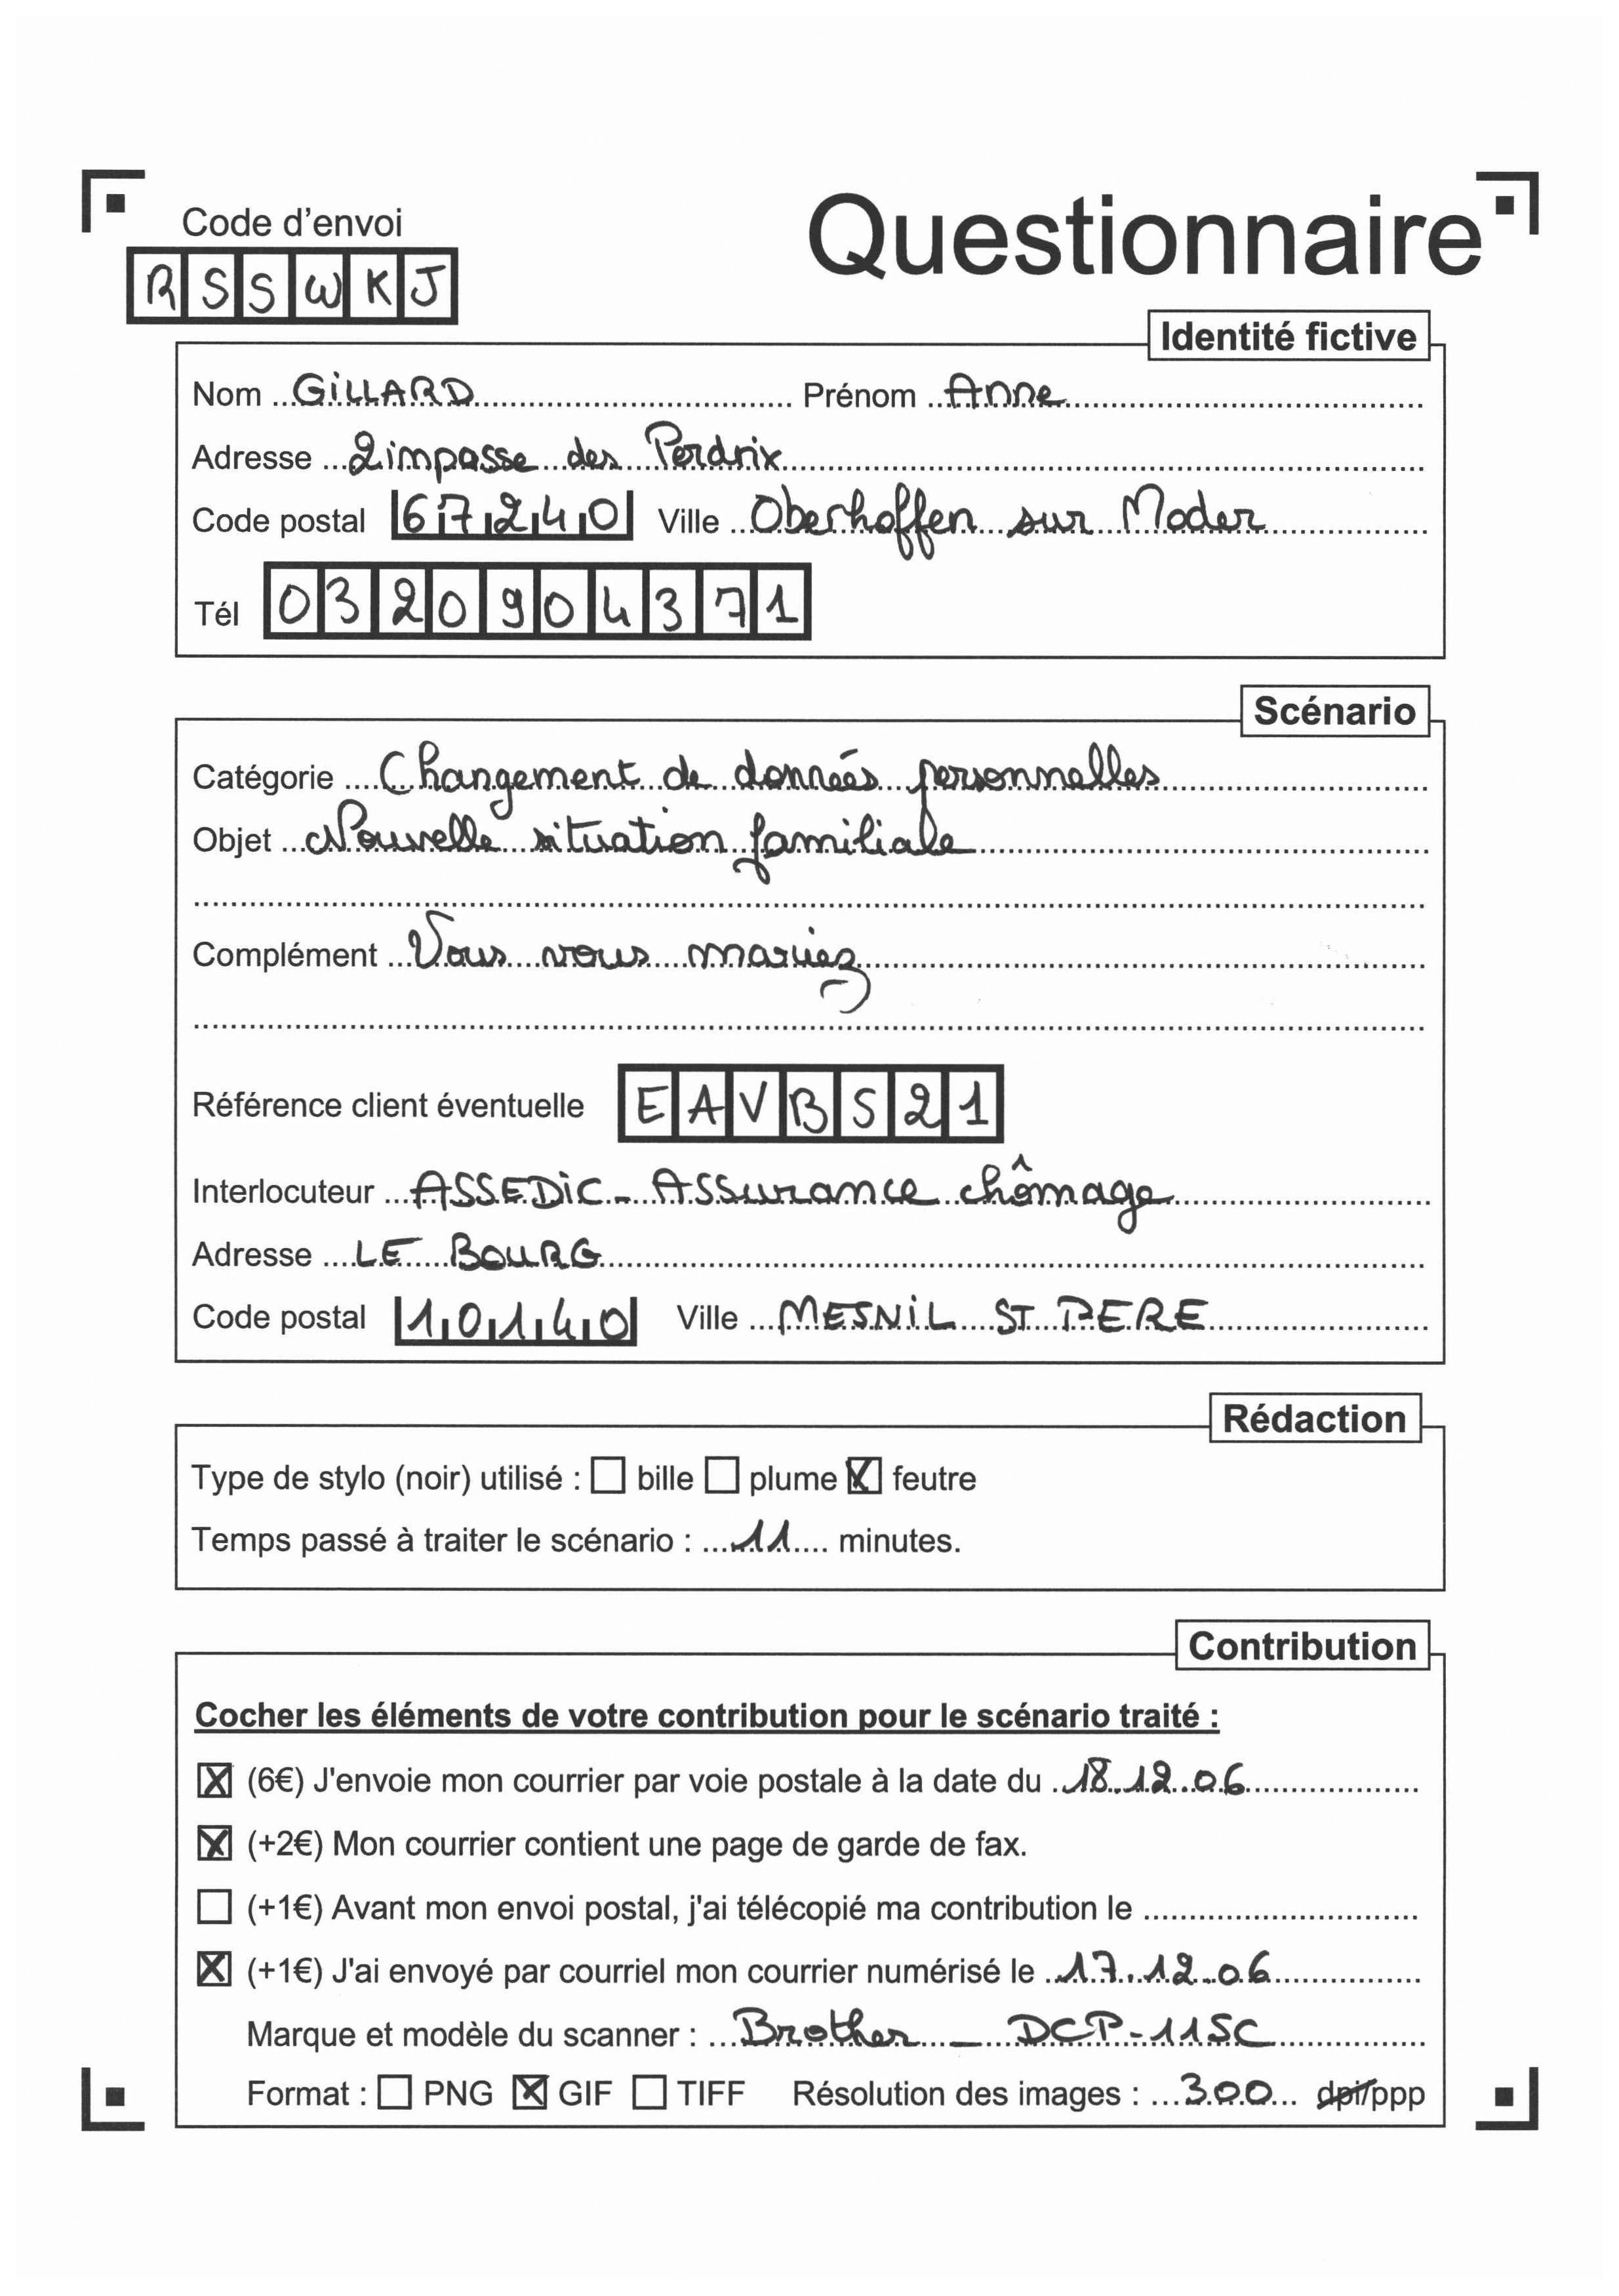 Code d'envoi
Questionnaire
RSSWKJ
Identité fictive
Nom GiLLARD Prénom Anne
Adresse 2 impasse des Perdrix
Code postal 67240 Ville Oberhoffen sur Moder
Tél 0320904371
Scénario
Catégorie Changement de données personnelles
Objet Nouvelle situation familiale
Complément Vous vous mariez
Référence client éventuelle EAVBS21
Interlocuteur ASSEDiC - Assurance chômage
Adresse LE BOURG
Code postal 10140 Ville MESNiL ST PERE
Rédaction
Type de stylo (noir) utilisé : bille plume feutre
Temps passé à traiter le scénario : 11 minutes.
Contribution
Cocher les éléments de votre contribution pour le scénario traité :
(6€) J'envoie mon courrier par voie postale à la date du 18.12.06
(+2€) Mon courrier contient une page de garde de fax.
(+1€) Avant mon envoi postal, j'ai télécopié ma contribution le
(+1€) J'ai envoyé par courriel mon courrier numérisé le 17.12.06
Marque et modèle du scanner : Brother - DCP-115C
Format : PNG GIF TIFF Résolution des images : 300 dpi/ppp